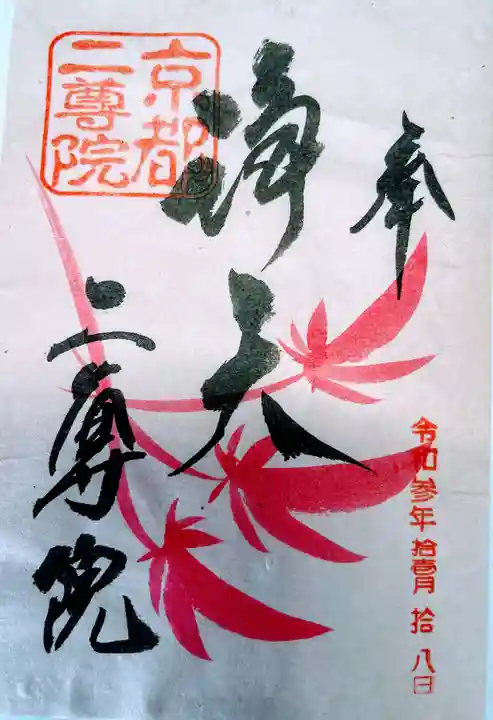 奉
令和参年拾壹月拾八日
浄火
京都
二尊院
二尊院